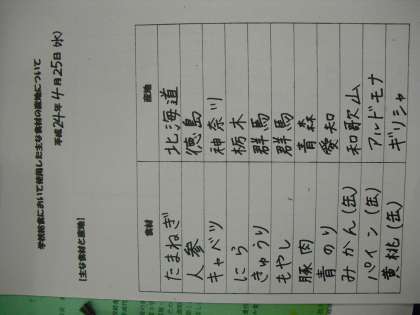 学校給食において使用した主な食材の産地について
平成24年4月25日(水)
【主な食材と産地】
食材 産地
たまねぎ 北海道
人参 徳島
キャベツ 神奈川
にら 栃木
きゅうり 群馬
もやし 群馬
豚肉 青森
青のり 愛知
みかん(缶) 和歌山
パイン(缶) アルドモナ
黄桃(缶) ギリシャ